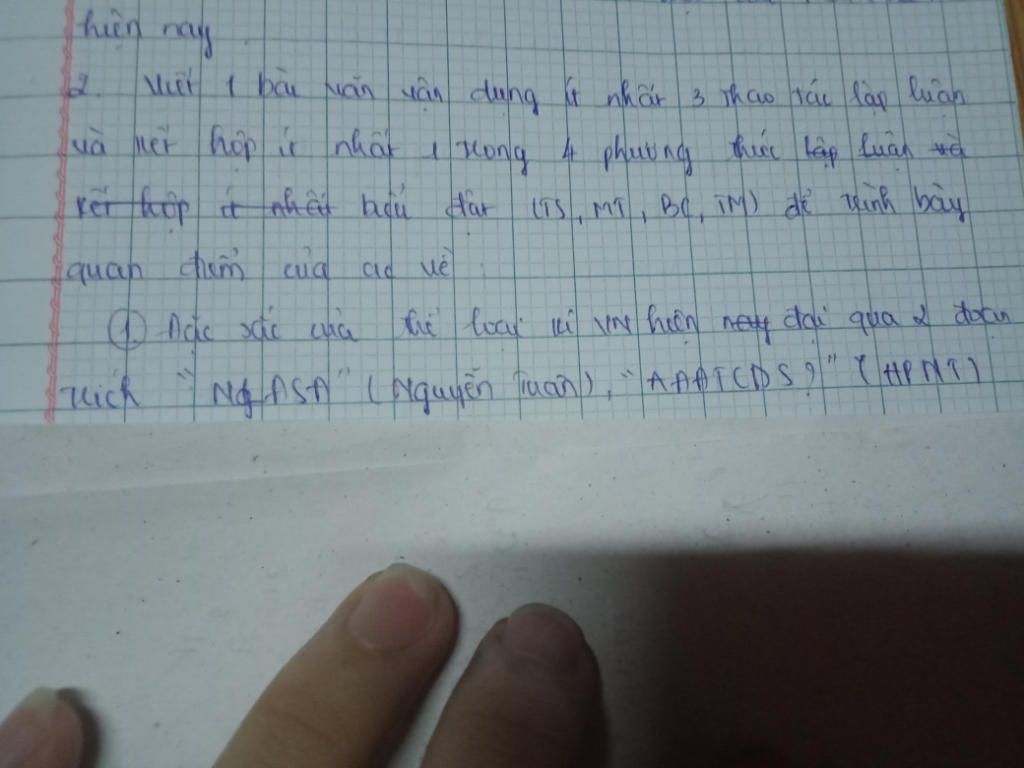 hiện nay
2. Viết 1 bài văn vận dụng ít nhất 3 thao tác lập luận
và kết hợp ít nhất 1 trong 4 phương thức lập luận và
kết hợp ít nhất biểu đạt (TS, MT, BC, TM) để trình bày
quan điểm của ac về
① Đặc sắc của thể loại kí VN hiện nay đại qua 2 đoạn
trích "NgĐSĐ" (Nguyễn Tuân), "AĐĐTCDS?" (HPNT)